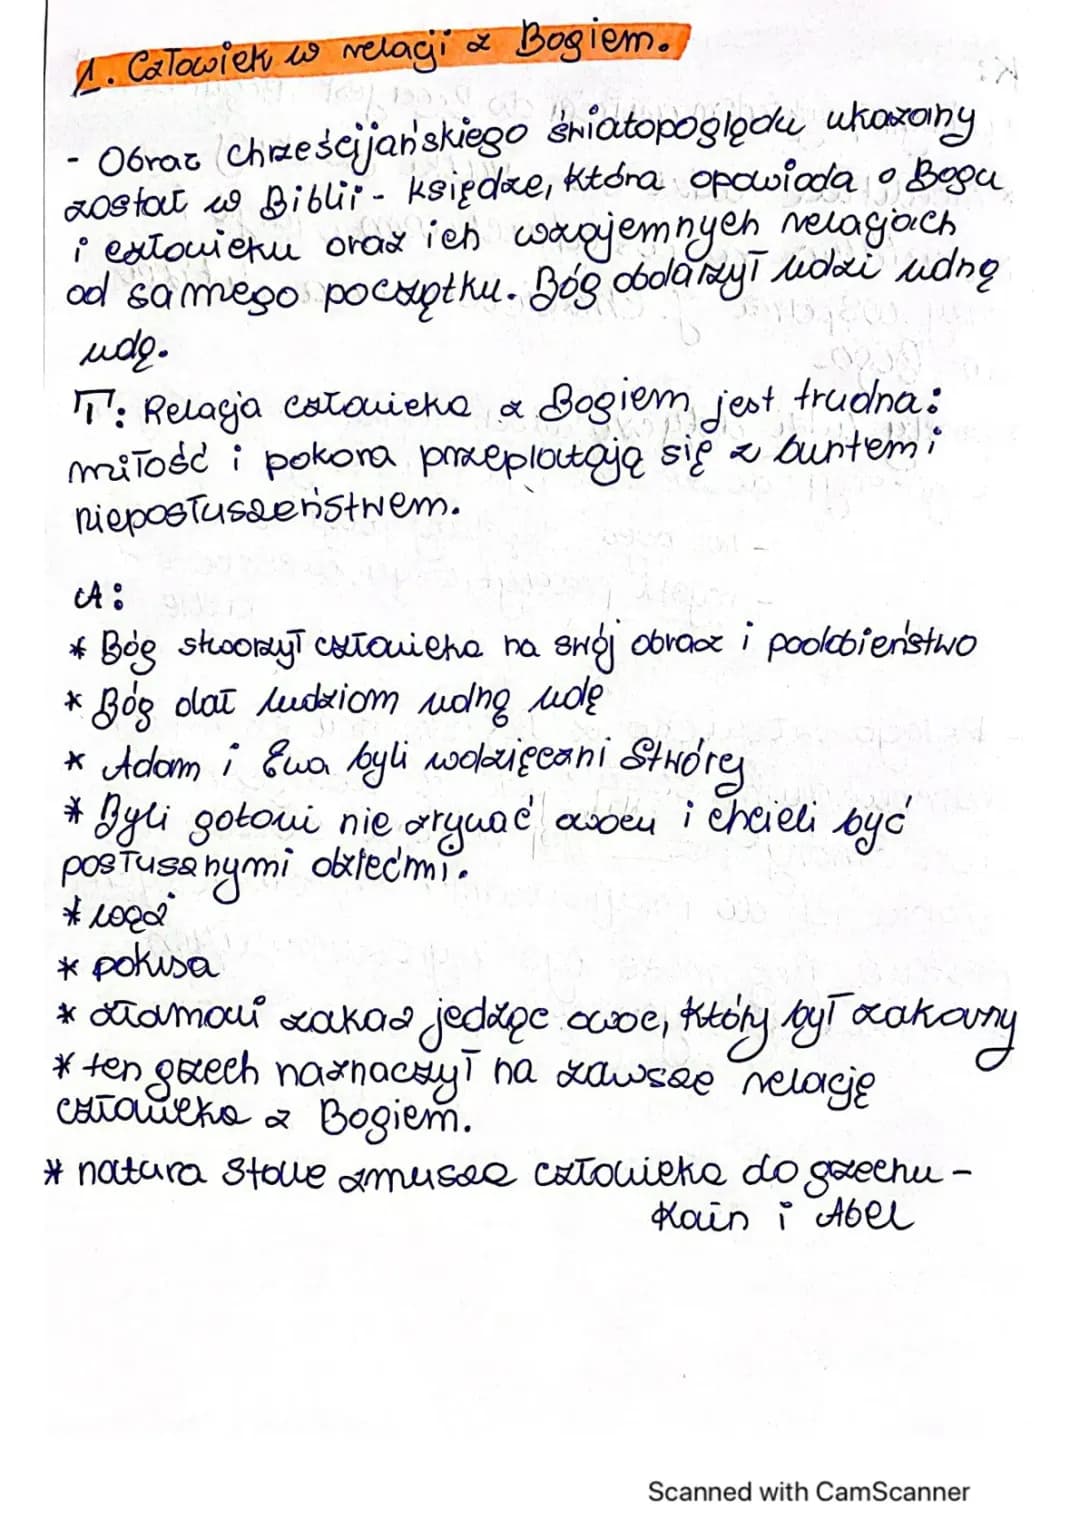 1. Człowiek w relacji z Bogiem.
- Obraz chrześcijańskiego światopoglądu ukazany
został w Biblii - księdze, która opowiada o Bogu
i człowieku oraz ich wzajemnych relacjach
od samego początku. Bóg obdarzył ludzi wolną
wolą.
T: Relacja człowieka z Bogiem jest trudna:
miłość i pokora przeplatają się z buntem i
nieposłuszeństwem.
A:
* Bóg stworzył człowieka na swój obraz i podobieństwo
* Bóg dał ludziom wolną wolę
* Adam i Ewa byli wdzięczni Stwórcy
* Byli gotowi nie zrywać owocu i chcieli być
posłusznymi dziećmi.
* wąż
* pokusa
* złamali zakaz jedząc owoc, który był zakazany
* ten grzech naznaczył na zawsze relację
człowieka z Bogiem.
* natura stale zmusza człowieka do grzechu -
Kain i Abel
Scanned with CamScanner